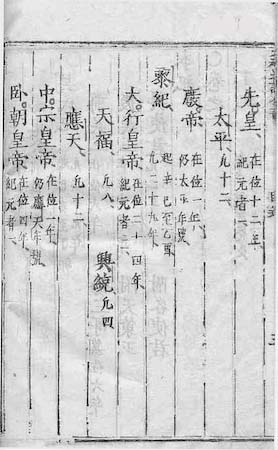 先皇 在位十二年 紀元者一
太平 凡十二
廢帝 在位一年 仍太平年號
黎紀 起辛巳至己酉 凡二十九年
大行皇帝 在位二十四年 紀元者三
天福 凡八 興統 凡四
應天 凡十二
中宗皇帝 在位一年 仍應天年號
臥朝皇帝 在位四年 紀元者二